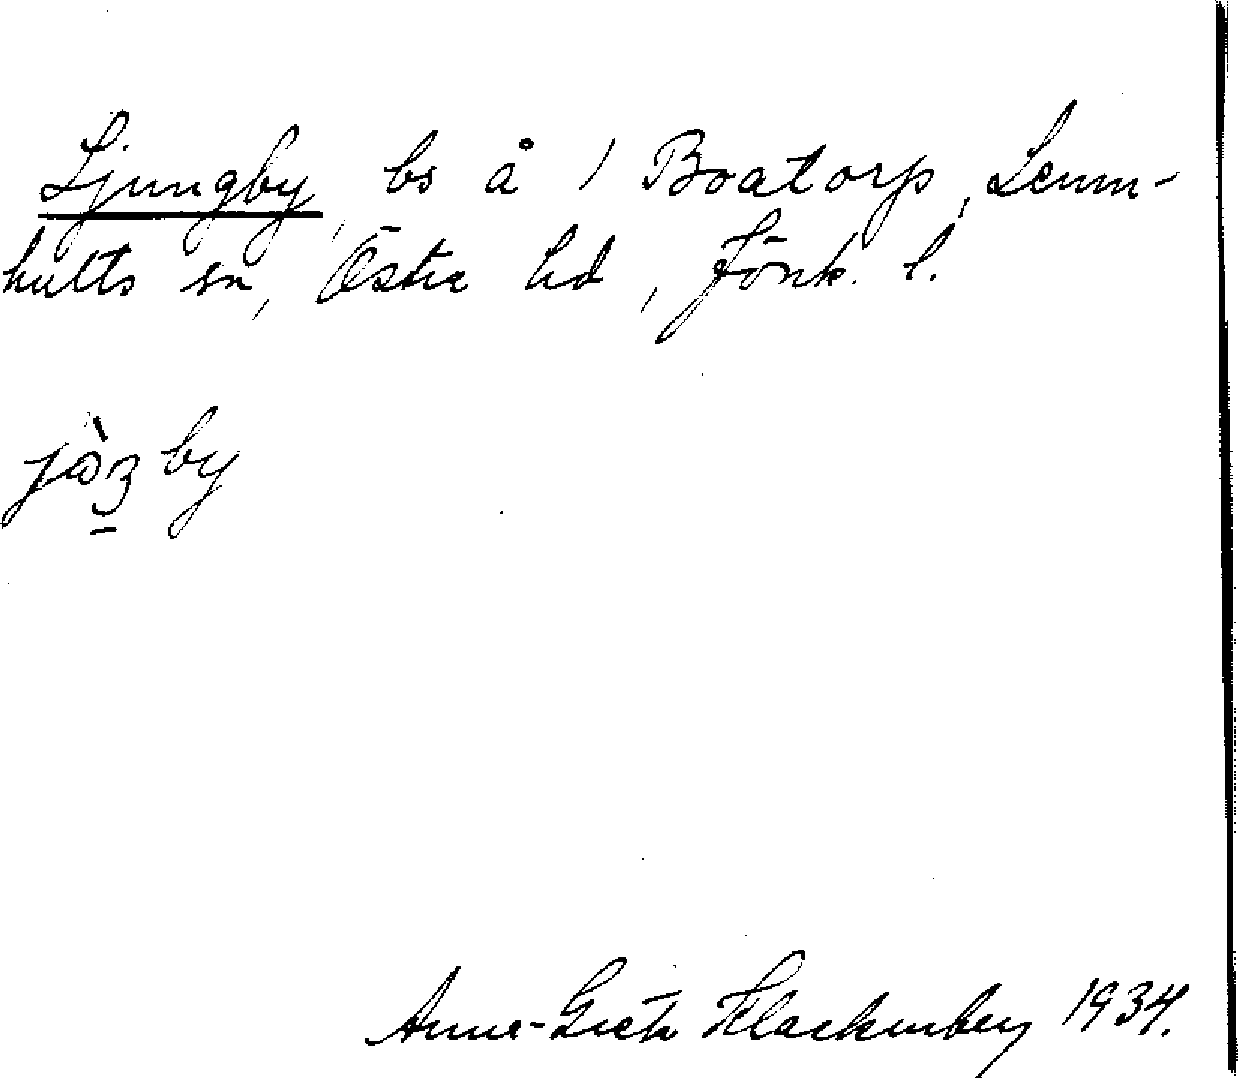 Ljungby, bs å 1 Boatorp, Lemm-
hults sn, Östra hd, Jönk. l.
by
Anne-Greta Klackenberg 1934.